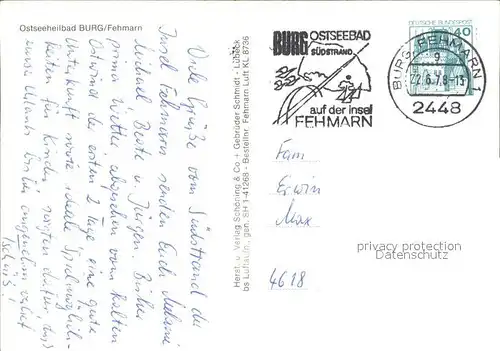 Ostseeheilbad BURG/Fehmarn
Viele Grüße vom Südstrand der
Insel Fehmarn senden Euch Melanie
Michael, Beate u. Jürgen. Bisher
prima Wetter abgesehen vom kalten
Ostwind der ersten 2 Tage eine gute
Unterkunft sowie ideale Spielmöglich-
keiten für Kinder sorgten dafür daß
unser Urlaub bisher angenehm verlief
Tschüß!
Herst. u. Verlag Schöning & Co + Gebrüder Schmidt - Lübeck
bs Luftaufn. gen. SH 1-41268 - Bestellnr. Fehmarn Luft KL 8736
BURG OSTSEEBAD
SÜDSTRAND
auf der Insel
FEHMARN
DEUTSCHE BUNDESPOST
40
BURG, FEHMARN 1
22.6.78-13
2448
Fam
Erwin
Max
4618
privacy protection
DANIMARTI COLLECTIONS